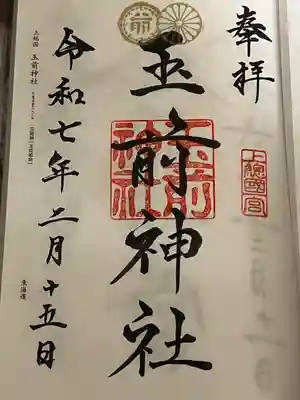 奉拝
上総国一宮
玉前神社
玉前神社
令和七年二月十五日
上総国 玉前神社
東海道